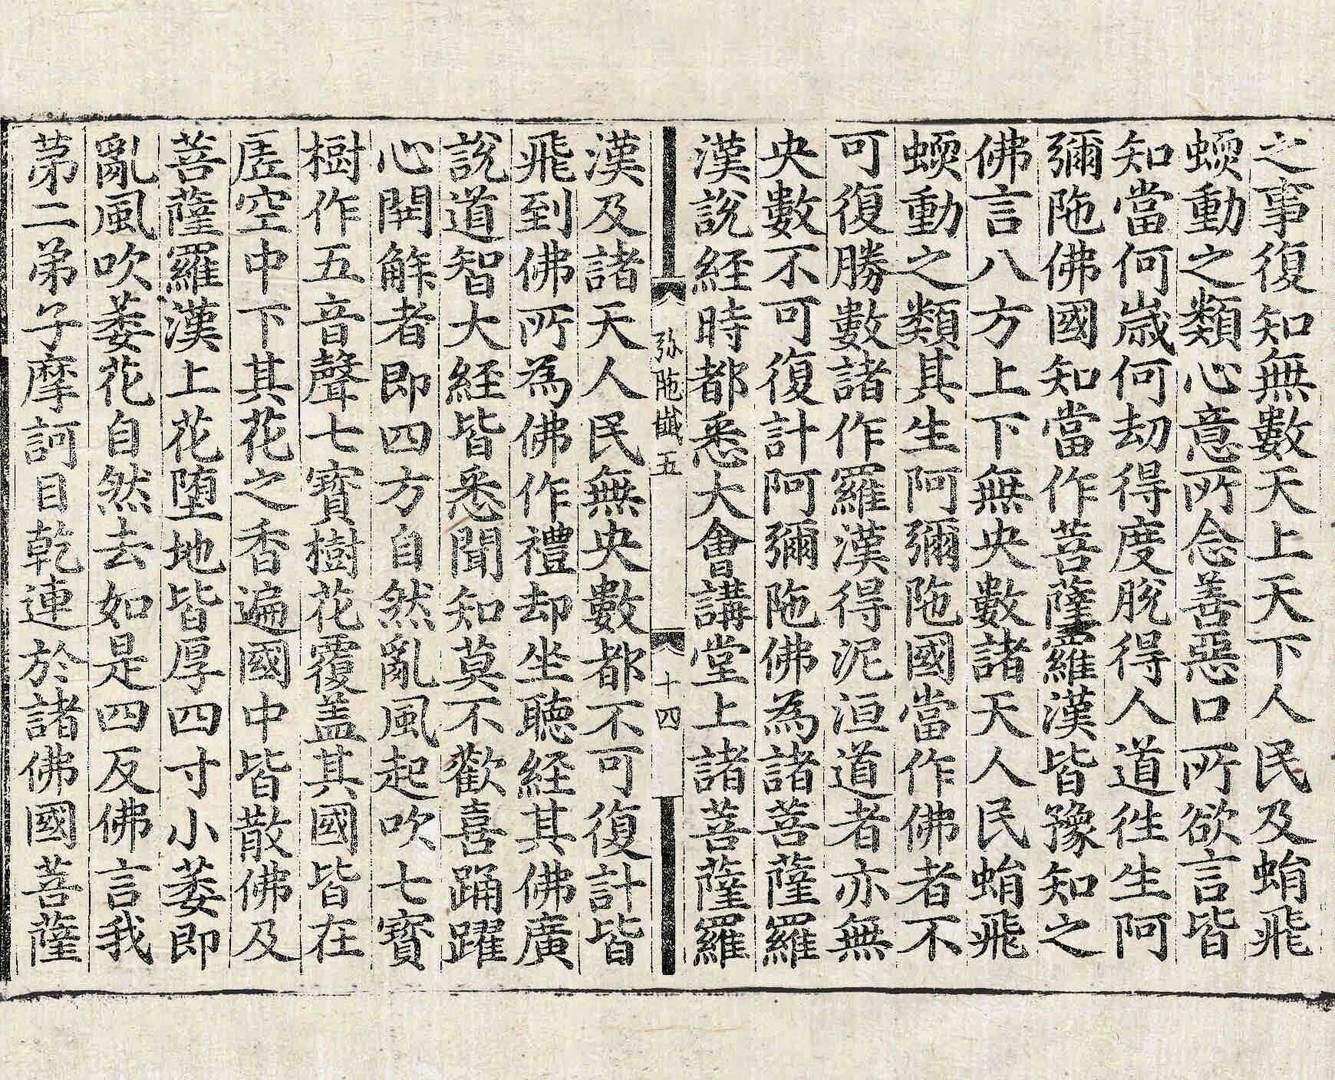 之事復知無數天上天下人民及蜎飛
蝡動之類心意所念善惡口所欲言皆
知當何歳何劫得度脫得人道徃生阿
彌陁佛國知當作菩薩羅漢皆豫知之
佛言八方上下無央數諸天人民蜎飛
蝡動之類其生阿彌陁國當作佛者不
可復勝數諸作羅漢得泥洹道者亦無
央數不可復計阿彌陁佛為諸菩薩羅
漢說經時都悉大會講堂上諸菩薩羅
弥陁懺五
十四
漢及諸天人民無央數都不可復計皆
飛到佛所為佛作禮却坐聽經其佛廣
說道智大經皆悉聞知莫不歡喜踊躍
心開解者即四方自然亂風起吹七寳
樹作五音聲七寳樹花覆盖其國皆在
虛空中下其花之香遍國中皆散佛及
菩薩羅漢上花墮地皆厚四寸小萎即
亂風吹萎花自然去如是四反佛言我
第二弟子摩訶目乾連於諸佛國菩薩